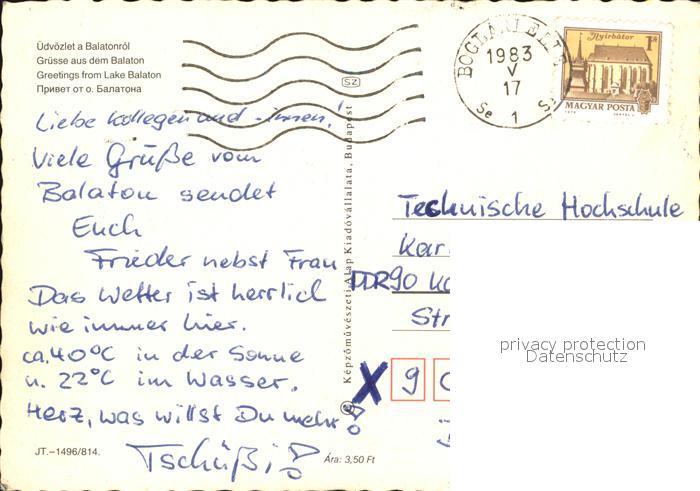 Üdvözlet a Balatonról
Grüsse aus dem Balaton
Greetings from Lake Balaton
Привет от о. Балатона
Liebe Kollegen und -innen!
Viele Grüße vom
Balaton sendet
Euch
Frieder nebst Frau
Das Wetter ist herrlich
wie immer hier.
ca. 40°C in der Sonne
u. 22°C im Wasser.
Herz, was willst Du mehr?
Tschüßi!
JT.–1496/814.
Ára: 3,50 Ft
SZ
Képzőművészeti Alap Kiadóvállalata, Budapest
1983
V
17
Se 1 S
Nyírbátor
1Ft
MAGYAR POSTA
Technische Hochschule
Kar
DDR 90 Ka
Str
X 9
privacy protection
Datenschutz